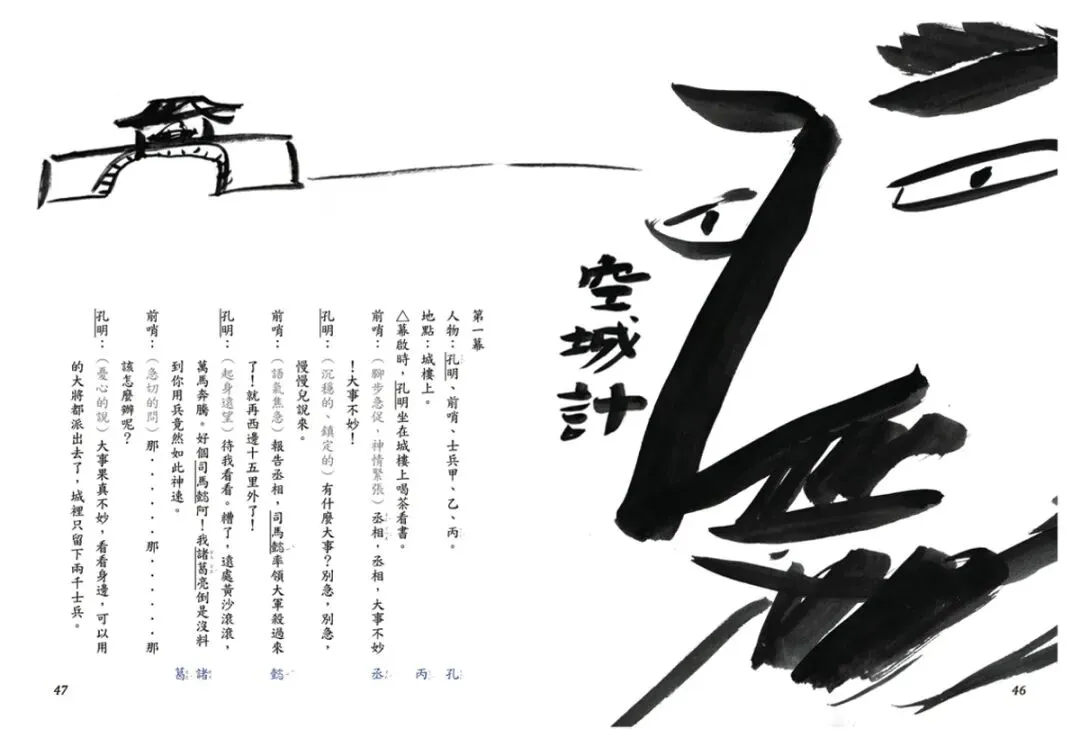 空城計
46
第一幕
人物：孔明、前哨、士兵甲、乙、丙。
地點：城樓上。
△幕啟時，孔明坐在城樓上喝茶看書。
前哨：（腳步急促、神情緊張）丞相，丞相，大事不妙
！大事不妙！
孔明：（沉穩的、鎮定的）有什麼大事？別急，別急，
慢慢兒說來。
前哨：（語氣焦急）報告丞相，司馬懿率領大軍殺過來
了！就再西邊十五里外了！
孔明：（起身遠望）待我看看。糟了，遠處黃沙滾滾，
萬馬奔騰。好個司馬懿阿！我諸葛亮倒是沒料
到你用兵竟然如此神速。
前哨：（急切的問）那．．．．．．那．．．．．．那
該怎麼辦呢？
孔明：（憂心的說）大事果真不妙，看看身邊，可以用
的大將都派出去了，城裡只留下兩千士兵。
孔
丙
丞
懿
諸
葛
47